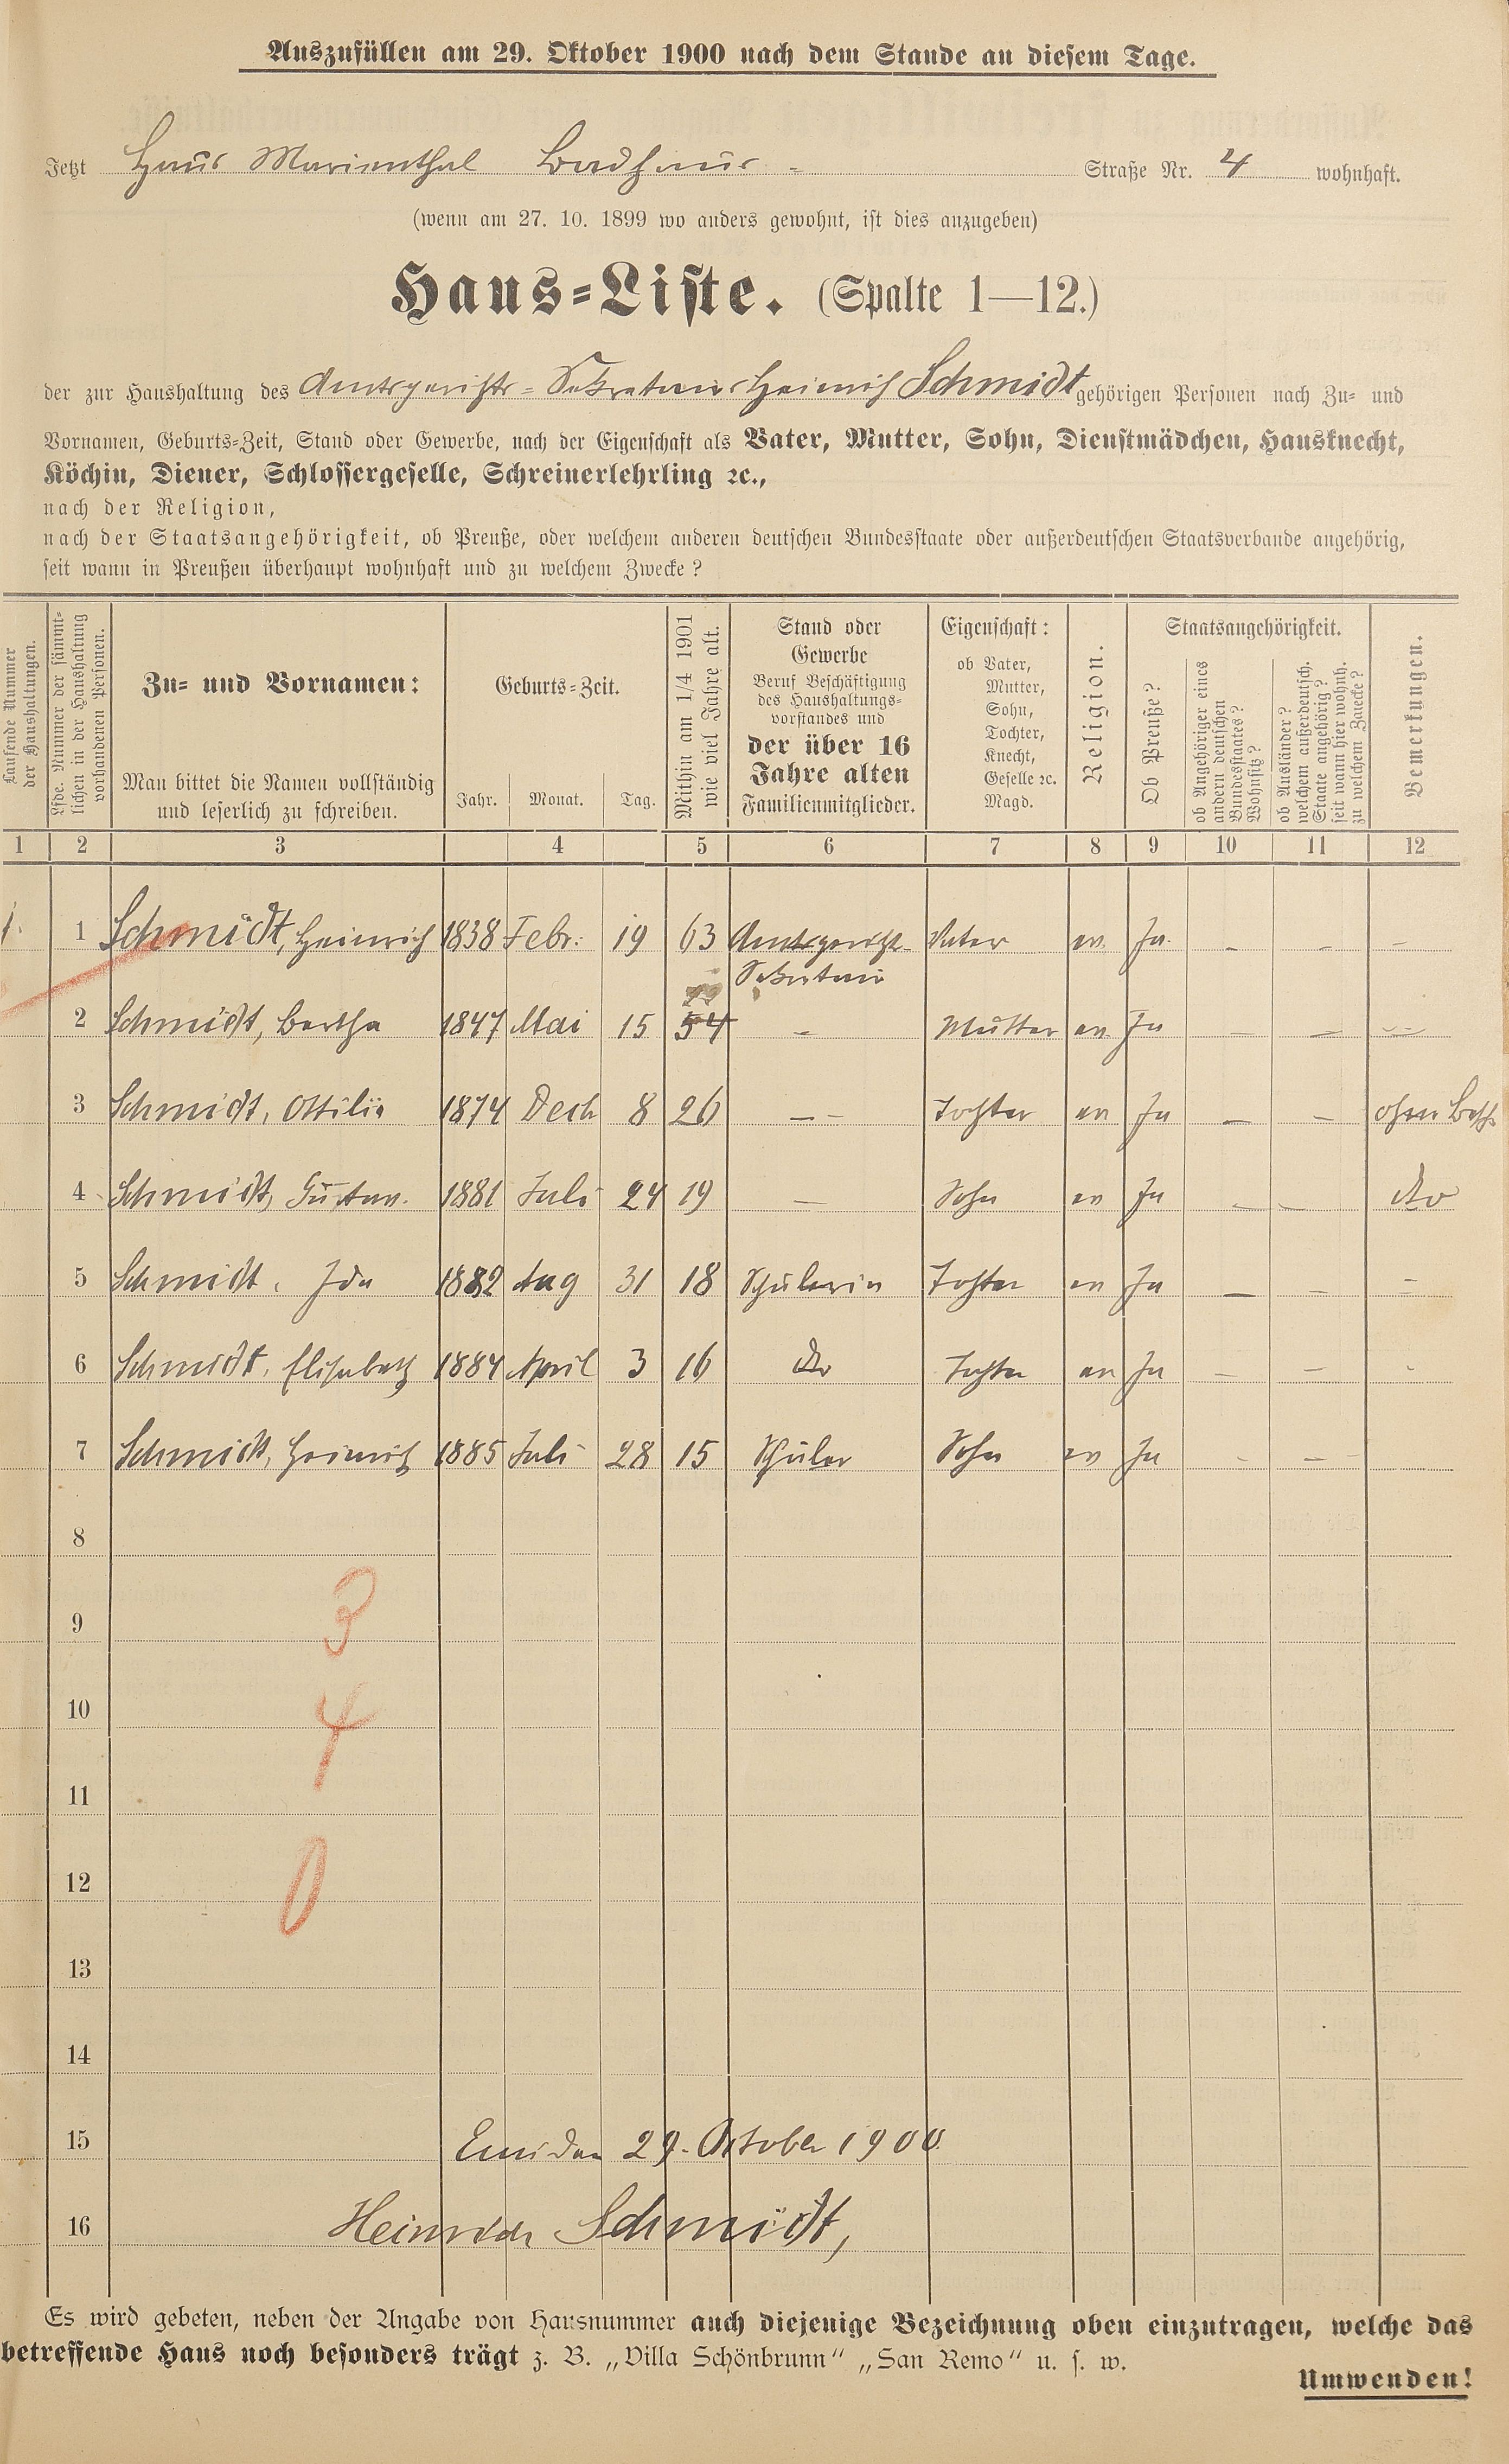 Auszufüllen am 29. Oktober 1900 nach dem Stande an diesem Tage.
Jetzt Haus Marienthal Badhaus- Straße Nr. 4 wohnhaft.
(wenn am 27. 10. 1899 wo anders gewohnt, ist dies anzugeben)
Haus-Liste. (Spalte 1—12.)
der zur Haushaltung des Amtsgerichts-Sekretairs Heinrich Schmidt gehörigen Personen nach Zu- und
Vornamen, Geburts-Zeit, Stand oder Gewerbe, nach der Eigenschaft als Vater, Mutter, Sohn, Dienstmädchen, Hausknecht,
Köchin, Diener, Schlossergeselle, Schreinerlehrling ꝛc.,
nach der Religion,
nach der Staatsangehörigkeit, ob Preuße, oder welchem anderen deutschen Bundesstaate oder außerdeutschen Staatsverbande angehörig,
seit wann in Preußen überhaupt wohnhaft und zu welchem Zwecke?
Laufende Nummer
der Haushaltungen.
Lfde. Nummer der sämmt-
lichen in der Haushaltung
vorhandenen Personen.
Zu- und Vornamen:
Man bittet die Namen vollständig
und leserlich zu schreiben.
Geburts-Zeit.
Jahr. Monat. Tag.
Mithin am 1/4 1901
wie viel Jahre alt.
Stand oder
Gewerbe
Beruf Beschäftigung
des Haushaltungs-
vorstandes und
der über 16
Jahre alten
Familienmitglieder.
Eigenschaft:
ob Vater,
Mutter,
Sohn,
Tochter,
Knecht,
Geselle ꝛc.
Magd.
Religion.
Staatsangehörigkeit.
Ob Preuße?
ob Angehöriger eines
andern deutschen
Bundesstaates?
Wohnsitz?
ob Ausländer?
welchem außerdeutsch.
Staate angehörig?
seit wann hier wohnh.
zu welchem Zwecke?
Bemerkungen.
1 2 3 4 5 6 7 8 9 10 11 12
1. 1 Schmidt, Heinrich 1838 Febr. 19 63 Amtsgericht- Vater ev. Ja. – – –
Sekretair
2 Schmidt, Bertha 1847 Mai 15 54 – Mutter ev. Ja – – –
3 Schmidt, Ottilie 1874 Dech 8 26 – – Tochter ev Ja – – ohne Besch.
4 Schmidt, Gustav. 1881 Juli 24 19 – Sohn ev Ja – – do
5 Schmidt, Ida 1882 Aug 31 18 Schülerin Tochter ev Ja – – –
6 Schmidt, Elisabeth 1884 April 3 16 do Tochter ev Ja – – -
7 Schmidt, Heinrich 1885 Juli 28 15 Schüler Sohn ev Ja - –
8
9 3
10 4
11
12 0
13
14
15 29. October 1900.
16 Heinrich Schmidt,
Es wird gebeten, neben der Angabe von Hausnummer auch diejenige Bezeichnung oben einzutragen, welche das
betreffende Haus noch besonders trägt z. B. „Villa Schönbrunn“ „San Remo“ u. s. w.
Umwenden!